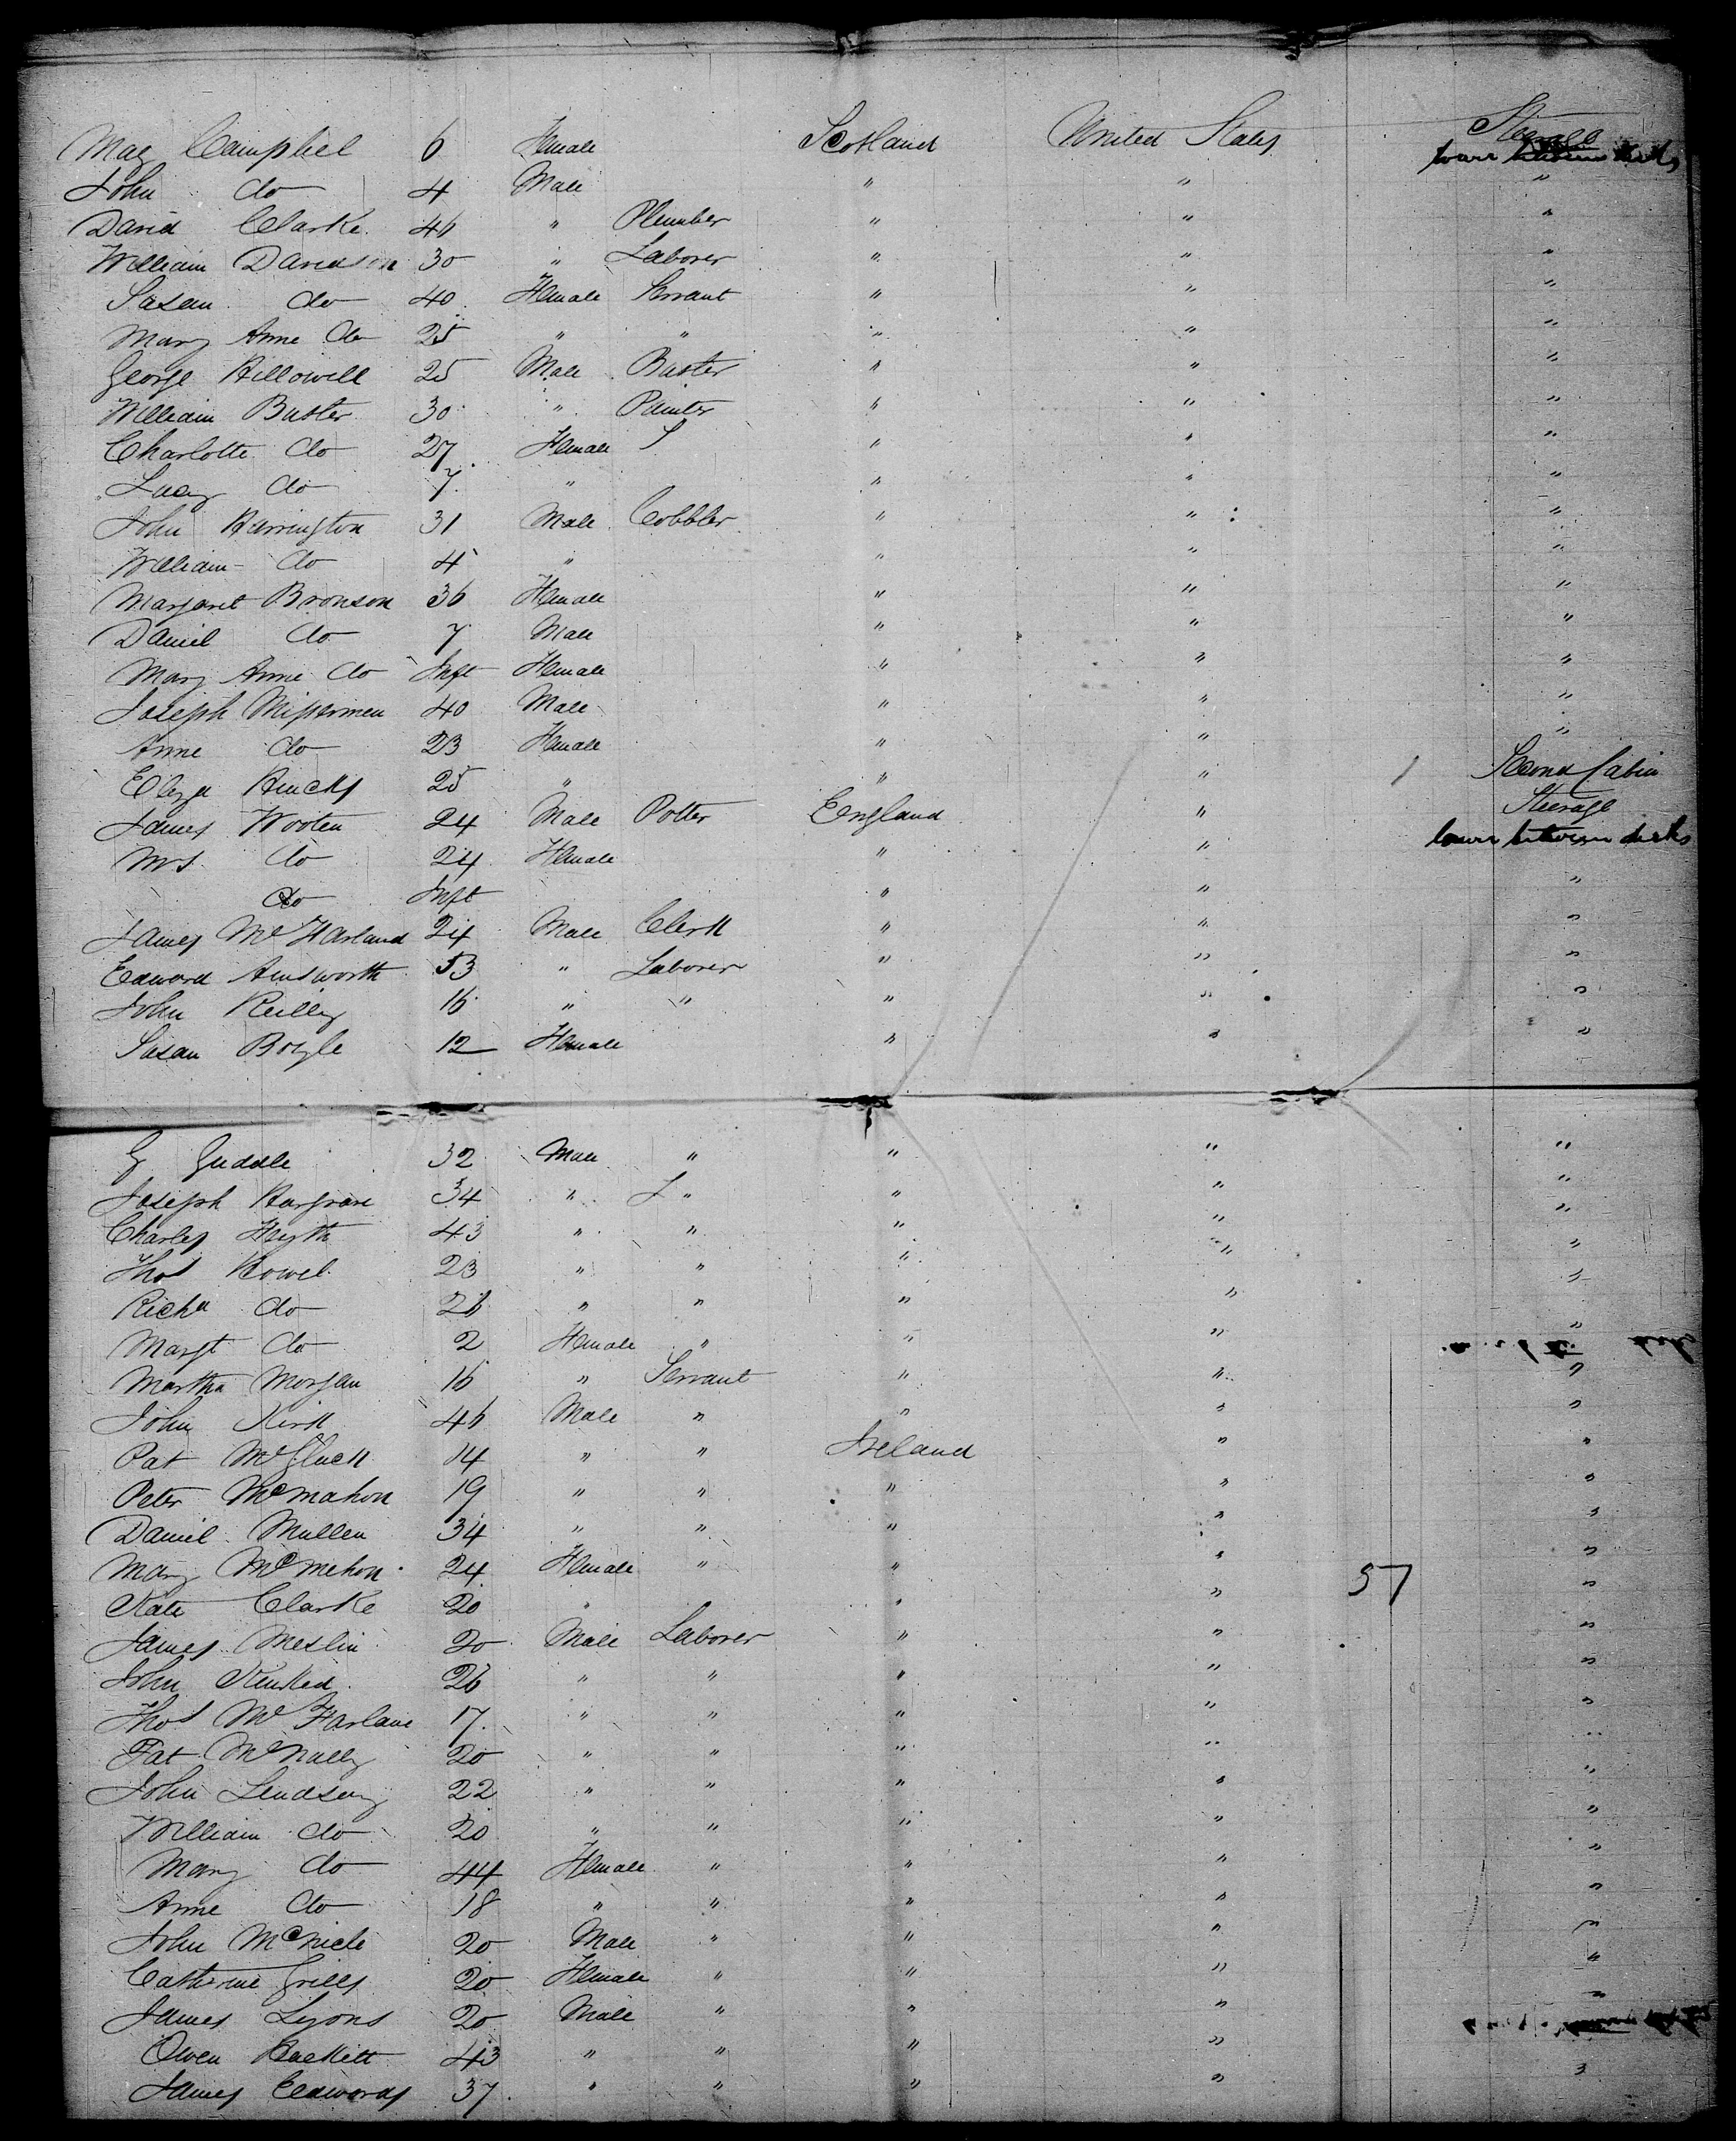 May Campbel 6 Female Scotland United States Steerage
lower between decks
John do 4 Male " " "
David Clarke 46 " Plumber " " "
William Davidson 30 " Laborer " " "
Susan do 40 Female Servant " " "
Mary Anne do 25 " " " " "
George Hillowell 25 Male Baster " " "
William Baster 30 " Painter " " "
Charlotte do 27 Female " " "
Lucy do 7 " " " "
John Harrington 31 Male Cobbler " " "
William do 4 " " " "
Margaret Bronson 36 Female " " "
Daniel do 7 Male " " "
Mary Anne do Inft Female " " "
Joseph 40 Male " " "
Anne do 23 Female " " "
Eliza Hincks 25 " " " Second Cabin
James Wooten 24 Male Potter England " Steerage
lower between decks
Mrs do 24 Female " "
do Inft " " "
James McFarland 24 Male Clerk " " "
Edward Ainsworth 53 " Laborer " " "
John Reilly 16 " " " " "
Susan Boyle 12 Female " " "
G Guddle 32 Male " " " "
Joseph Hargrave 34 " " " " "
Charles 43 " " " " "
Thos Howel 23 " " " " "
Richd do 26 " " " " "
Margt do 2 Female " " " "
Martha Morgan 16 " Servant " " "
John Kirk 46 Male " " " "
Pat 14 " " Ireland " "
Peter McMahon 19 " " " " "
Daniel Mullen 34 " " " " "
Mary McMehon 24 Female " " " "
57
Kate Clarke 20 " " " "
James Meslin 20 Male Laborer " " "
John 26 " " " " "
Thos McFarlane 17 " " " " "
Pat McNally 20 " " " " "
John Lindsey 22 " " " " "
William do 20 " " " " "
Mary do 44 Female " " " "
Anne do 18 " " " " "
John McNiele 20 Male " " " "
Catherine Grills 20 Female " " " "
James Lyons 20 Male " " " "
Owen Hackett 43 " " " "
James Edwards 37 " " " " "